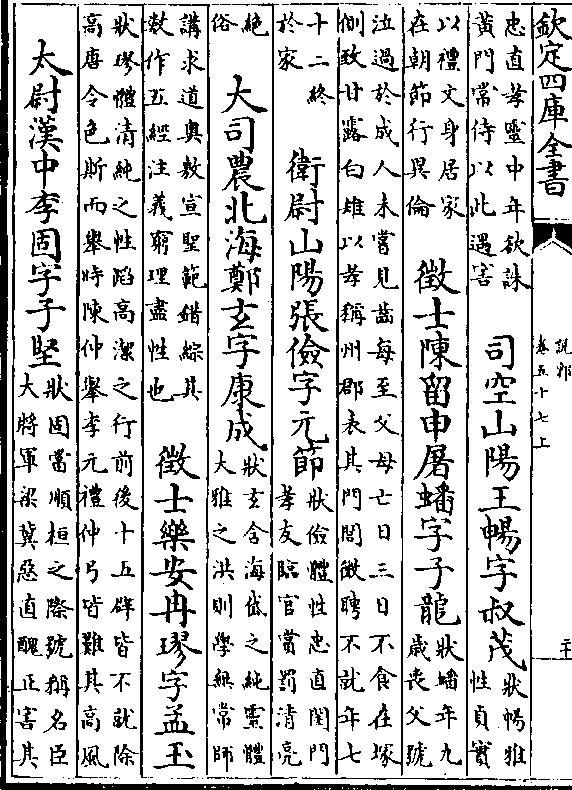 欽定四庫全書
說郛
卷五十七上
二十
忠直孝靈中年欲誅
黃門常侍以此遇害
司空山陽王暢字叔茂
狀暢雅
性貞實
以禮文身居家
在朝節行異倫
徵士陳留申屠蟠字子龍
狀蟠年九
歲喪父號
泣過於成人未嘗見齒每至父母亡日三日不食在塚
側致甘露白雉以孝稱州郡表其門閭徵聘不就年七
十二終
於家
衛尉山陽張儉字元節
狀儉體性忠直閨門
孝友臨官賞罰清亮
絶
俗
大司農北海鄭玄字康成
狀玄含海岱之純靈體
大雅之洪則學無常師
講求道奧敷宣聖範錯綜其
數作五經注義窮理盡性也
徵士樂安冉璆字孟玉
狀璆體清純之性蹈高潔之行前後十五辟皆不就除
高唐令色斯而舉時陳仲舉李元禮仲弓皆難其高風
太尉漢中李固字子堅
狀固當順桓之際號稱名臣
大將軍梁冀惡直醜正害其